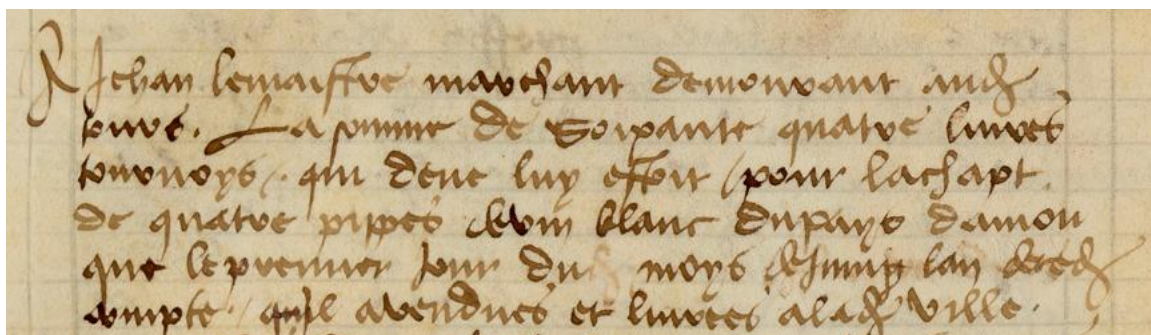 A Jehan lemaistre marchant demourant aud
tours. La somme de Soixante quatre livres
tournoys, qui deue luy estoit pour lachapt
de quatre pippes de vin blanc du pays danjou
que le premier jour dud moys de juing lan de ced
compte, quil a vendues et livrees a lad ville.